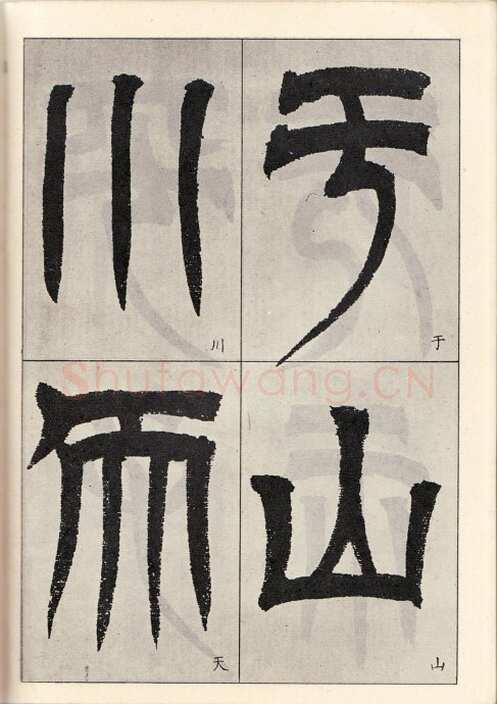 于
于
山
山
川
川
而
天
Shufawang.CN